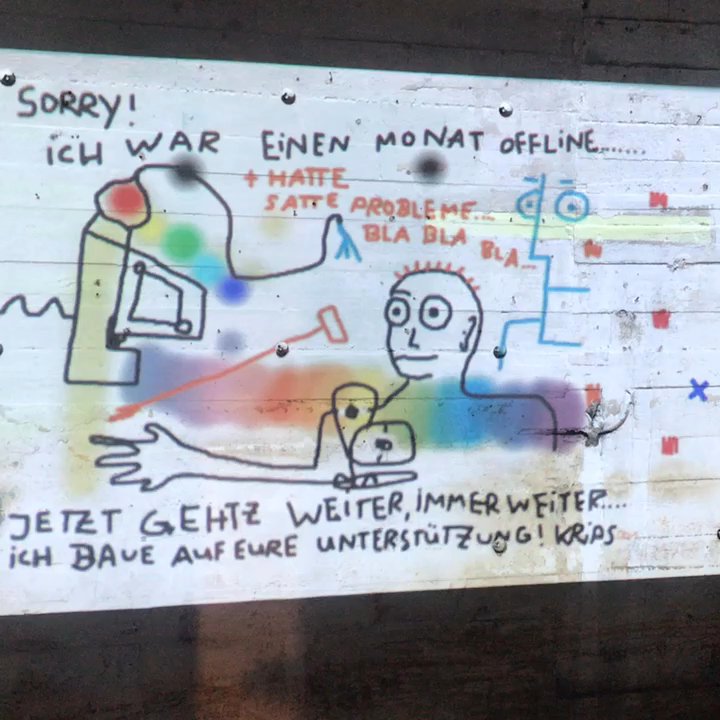 SORRY!
ICH WAR EINEN MONAT OFFLINE......
+ HATTE
SATTE PROBLEME...
BLA BLA BLA...
JETZT GEHTZ WEITER, IMMER WEITER....
ICH BAUE AUF EURE UNTERSTÜTZUNG! KRIPS